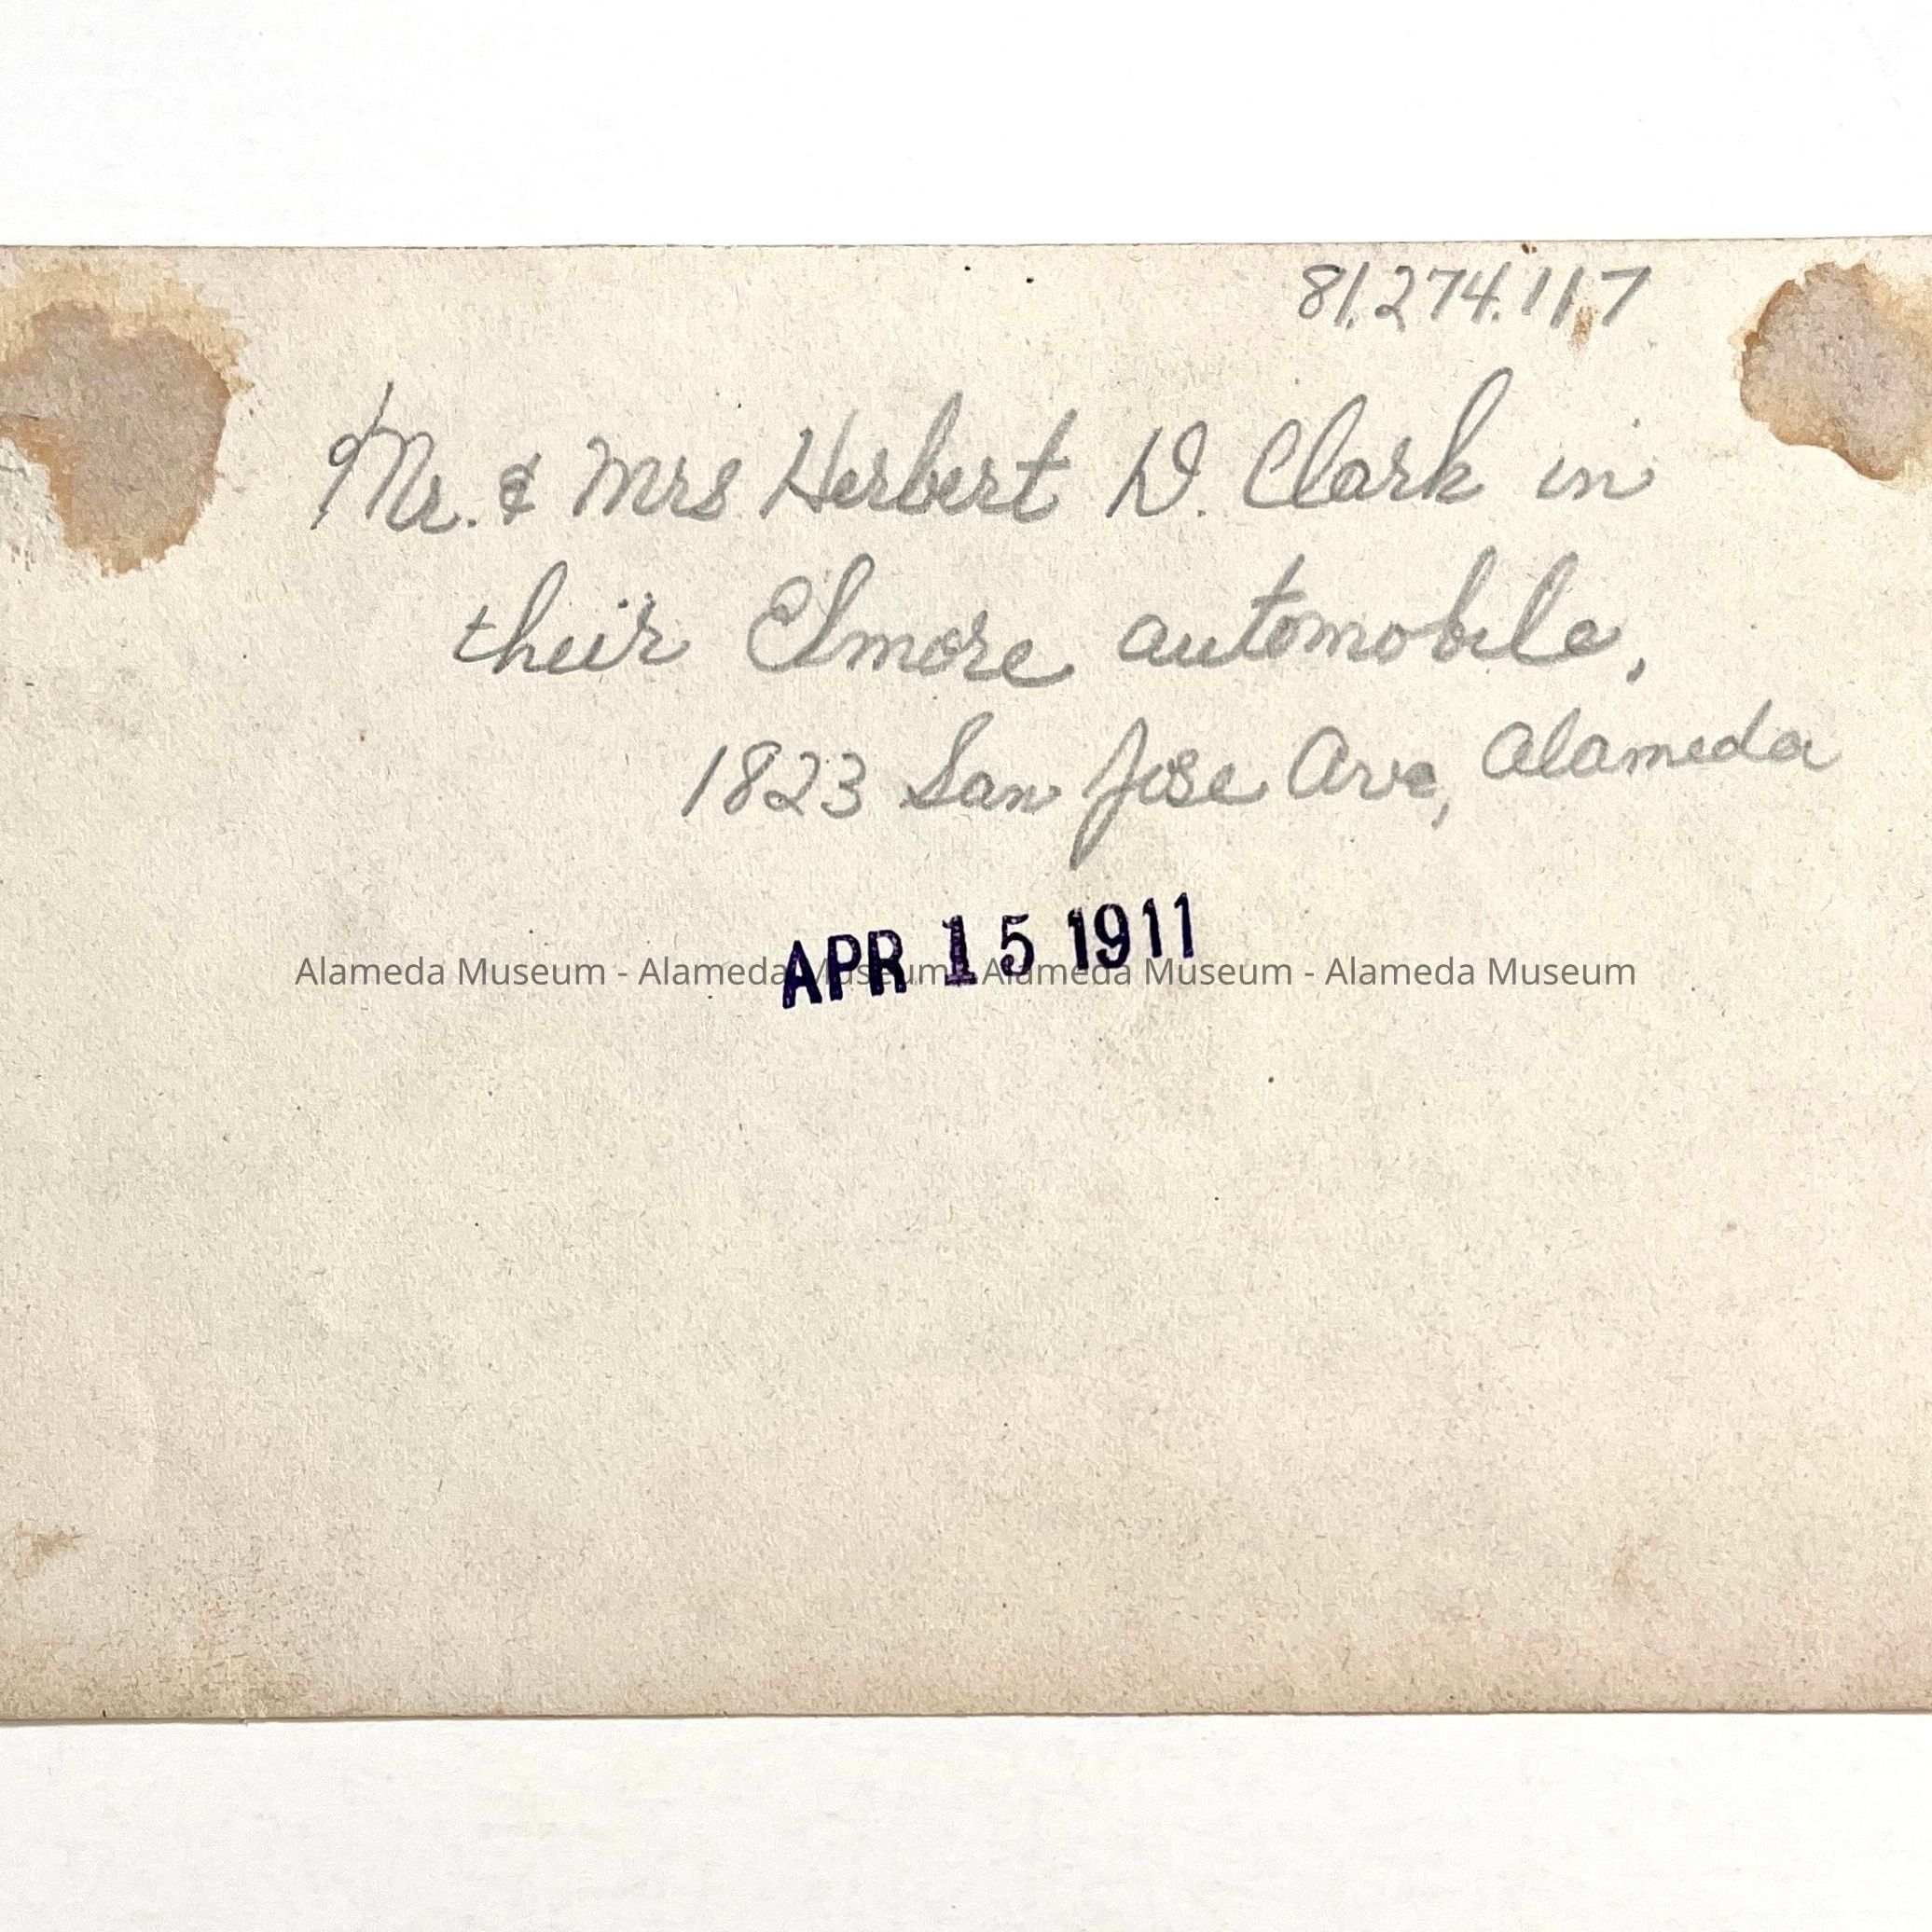 81.274.117
Mr. & Mrs Herbert D. Clark in
their Elmore automobile,
1823 San Jose Ave, Alameda
APR 15 1911
Alameda Museum - Alameda Museum - Alameda Museum - Alameda Museum